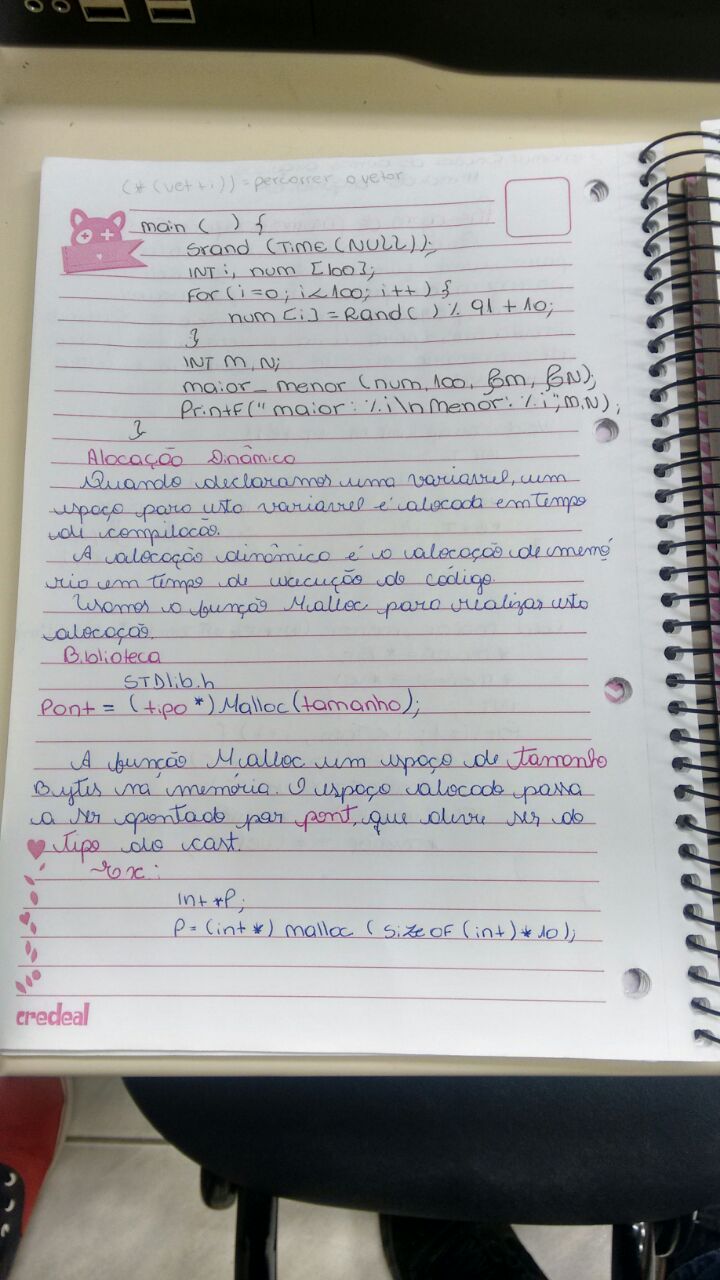 (*(vet+i)) = percorrer o vetor
main ( ) {
Srand (Time (NULL));
INT i, num [100];
For (i=0; i<100; i++) {
num [i] = Rand( ) % 91 + 10;
}
INT M, N;
maior_menor (num, 100, &m, &N);
PrintF("maior: %i\n menor: %i", M, N);
}
Alocação Dinâmica
Quando declaramos uma variavel, um
espaço para esta variavel é alocada em tempo
de compilacão.
A alocação dinâmica é a alocação de memó
ria em tempo de execução do código
Usamos a função Malloc para realizar esta
alocação.
Biblioteca
STDlib.h
Pont = (tipo *) Malloc(tamanho);
A função Malloc um espaço de tamanho
Bytes na memória. O espaço alocado passa
a ser apontado por pont, que deve ser do
tipo do cast.
Ex:
Int *P;
P = (int *) malloc ( sizeOF (int) * 10);
credeal